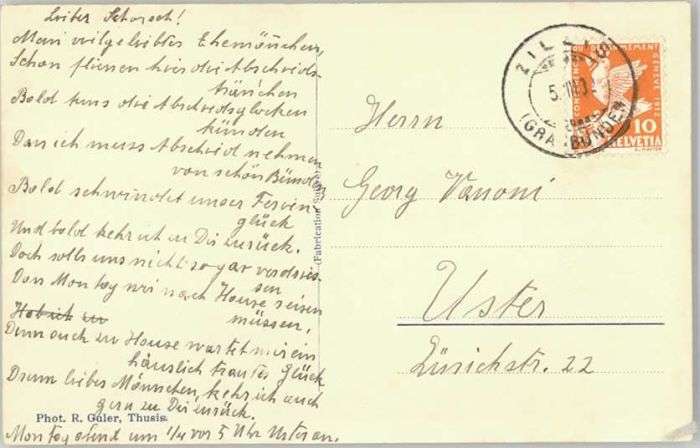 Lieber Schorsch!
Mein vilgeliebtes Ehemännchen,
Schon fliessen hier die Abscheids-
tränchen
Bald tuns die Abscheidsglocken
künden
Das ich muss Abscheid nehmen
von schön Bünden
Bald schwindet unser Ferien-
glück
Und bald kehr ich zu Dir zurück.
Doch solls uns nicht so gar verdries-
sen
Das Montag wir nach Hause reisen
müssen,
Hab ich
Denn auch zu Hause wartet mir ein
häuslich trautes Glück
Drum liebes Männchen, kehr ich auch
gern zu Dir zurück.
Montag abend um 1/4 vor 5 Uhr Uster an.
Phot. R. Guler, Thusis.
(Fabrication Suisse)
Herrn
Georg Vanoni
Uster
Zürichstr. 22
ZILLIS
(GRAUBÜNDEN)
CONFERENCE DU DESARMEMENT
GENEVE 1932
10
HELVETIA